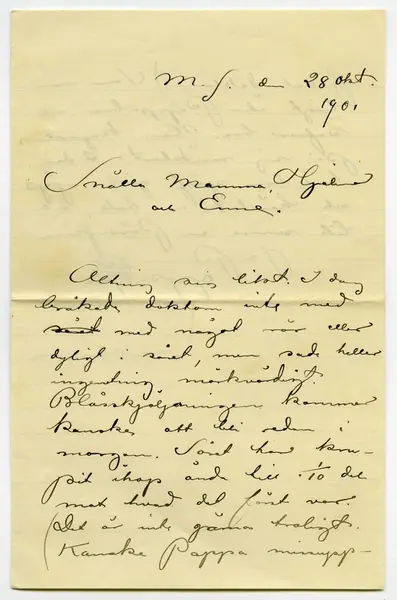 M. S. den 28 Okt.
1901
Snälla Mamma, Hjalmar
och Emme.
Allting sig likt. I dag
bråkade doktorn inte med
med något rör eller
dyligt i såret, men sade heller
ingenting märkvärdigt.
Blåssköljningen kommer
kanske att bli redan i
morgon. Såret har kru-
pit ihop ända till 1/10 del
mot hvad det först var.
(Det är inte gärna troligt.
(Kanske Pappa minupp-